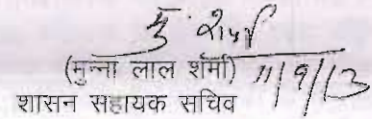 (मुन्ना लाल शर्मा) 11/9/13
शासन सहायक सचिव